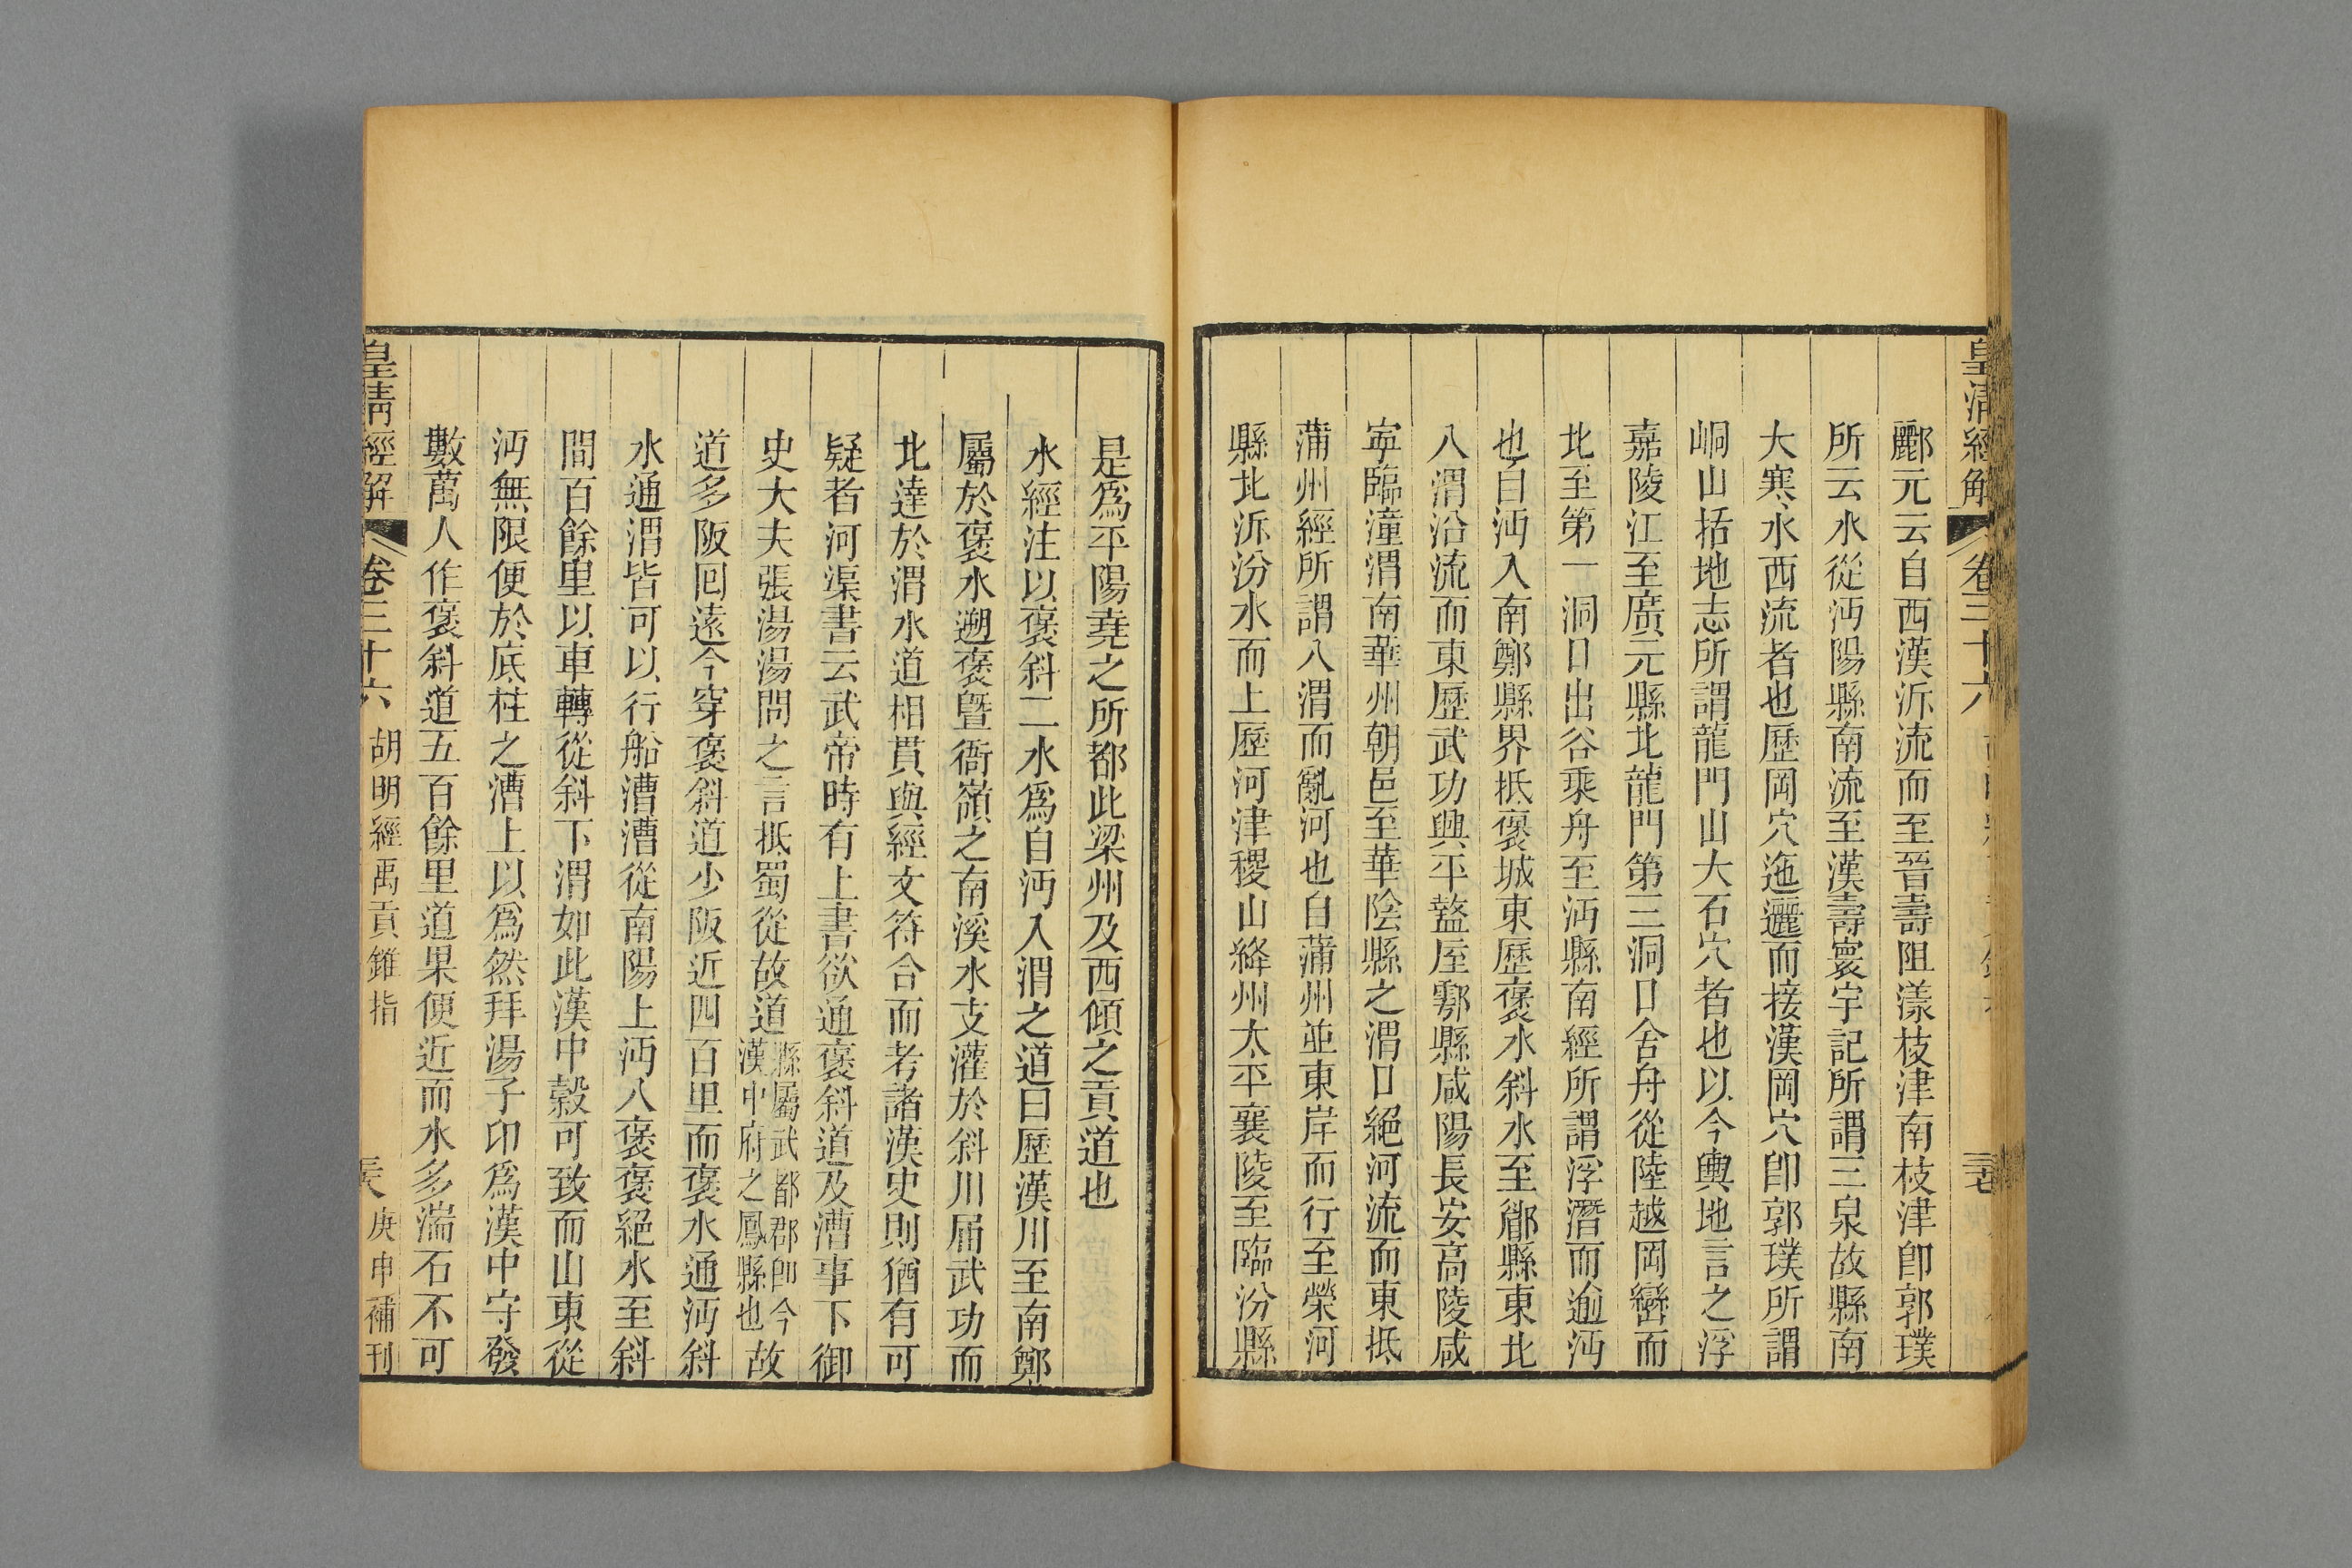 皇清經解 卷三十六
酈元云自西漢泝流而至晉壽阻漾枝津南枝津卽郭璞
所云水從沔陽縣南流至漢壽寰宇記所謂三泉故縣南
大寒水西流者也歷岡穴迤邐而接漢岡穴卽郭璞所謂
峒山括地志所謂龍門山大石穴者也以今輿地言之浮
嘉陵江至廣元縣北龍門第三洞口舍舟從陸越岡巒而
北至第一洞口出谷乘舟至沔縣南經所謂浮潛而逾沔
也自沔入南鄭縣界抵褒城東歷褒水斜水至郿縣東北
入渭沿流而東歷武功興平盩厔鄠縣咸陽長安高陵咸
寧臨潼渭南華州朝邑至華陰縣之渭口絕河流而東抵
蒲州經所謂入渭而亂河也自蒲州並東岸而行至榮河
縣北泝汾水而上歷河津稷山絳州太平襄陵至臨汾縣
是爲平陽堯之所都此梁州及西傾之貢道也
水經注以褒斜二水爲自沔入渭之道曰歷漢川至南鄭
屬於褒水遡褒曁衙嶺之南溪水支灌於斜川屆武功而
北達於渭水道相貫與經文符合而考諸漢史則猶有可
疑者河渠書云武帝時有上書欲通褒斜道及漕事下御
史大夫張湯湯問之言抵蜀從故道縣屬武都郡卽今漢中府之鳳縣也故
道多阪回遠今穿褒斜道少阪近四百里而褒水通沔斜
水通渭皆可以行船漕漕從南陽上沔入褒褒絕水至斜
間百餘里以車轉從斜下渭如此漢中穀可致而山東從
沔無限便於底柱之漕上以爲然拜湯子卬爲漢中守發
數萬人作褒斜道五百餘里道果便近而水多湍石不可
皇清經解 卷三十六 胡明經禹貢錐指 庚申補刊